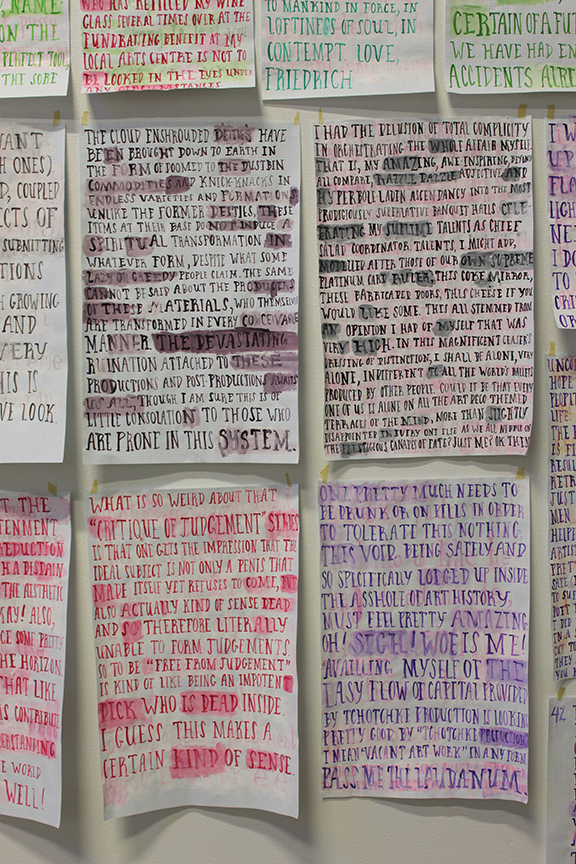 NAME
ON THE
PERFECT TOOL
THE SORE
WHO HAS REFILLED MY WINE
GLASS SEVERAL TIMES OVER AT THE
FUNDRAISING BENEFIT AT MY
LOCAL ARTS CENTRE IS NOT TO
BE LOOKED IN THE EYES UNDER
ANY CIRCUMSTANCES
TO MANKIND IN FORCE, IN
LOFTINESS OF SOUL, IN
CONTEMPT. LOVE,
FRIEDRICH
CERTAIN OF A FUT
WE HAVE HAD EN
ACCIDENTS ALRE
WANT
ONES)
D, COUPLED
ECTS OF
SUBMITTING
TIONS
H GROWING
AND
VERY
THIS IS
VE LOOK.
THE CLOUD ENSHROUDED DEITIES HAVE
BEEN BROUGHT DOWN TO EARTH IN
THE FORM OF DOOMED TO THE DUSTBIN
COMMODITIES AND KNICK-KNACKS IN
ENDLESS VARIETIES AND FORMATIONS
UNLIKE THE FORMER DEITIES, THESE
ITEMS AT THEIR BASE DO NOT INDUCE A
SPIRITUAL TRANSFORMATION IN
WHATEVER FORM, DESPITE WHAT SOME
LAZY OR GREEDY PEOPLE CLAIM. THE SAME
CANNOT BE SAID ABOUT THE PRODUCERS
OF THESE MATERIALS, WHO THEMSELVES
ARE TRANSFORMED IN EVERY CONCEIVABLE
MANNER. THE DEVASTATING
RUINATION ATTACHED TO THESE
PRODUCTIONS AND POST-PRODUCTIONS AWAITS
US ALL, THOUGH I AM SURE THIS IS OF
LITTLE CONSOLATION TO THOSE WHO
ARE PRONE IN THIS SYSTEM.
I HAD THE DELUSION OF TOTAL COMPLICITY
IN ORCHESTRATING THE WHOLE AFFAIR MYSELF.
THAT IS, MY AMAZING, AWE INSPIRING, BEYOND
ALL COMPARE, RAZZLE DAZZLE ADJECTIVE AND
HYPERBOLE LADEN ASCENDANCY INTO THE MOST
PRODIGIOUSLY SUPERLATIVE BANQUET HALLS CELE-
BRATING MY SUBLIME TALENTS AS CHIEF
SALAD COORDINATOR. TALENTS, I MIGHT ADD,
MODELLED AFTER THOSE OF OUR OWN SUPREME
PLATINUM CARD RULER, THIS COKE MIRROR,
THESE BARRICADED DOORS, THIS CHEESE IF YOU
WOULD LIKE SOME. THIS ALL STEMMED FROM
AN OPINION I HAD OF MYSELF THAT WAS
VERY HIGH. IN THIS MAGNIFICENT
DRESSING OF DISTINCTION, I SHALL BE ALONE, VERY
ALONE, INDIFFERENT TO ALL THE WORLD'S
PRODUCED BY OTHER PEOPLE. COULD IT BE THAT EVERY
ONE OF US IS ALONE ON ALL THE ART DECO THEMED
TERRACES OF THE MIND, MORE THAN SLIGHTLY
DISAPPOINTED IN EVERY ONE ELSE AS WE ALL NIBBLE ON
THE PRESTIGIOUS CANAPES OF FATE? JUST ME? OK THEN
T THE
TENMENT
REDUCTION
A DISDAIN
THE AESTHETIC
KAY! ALSO,
CE SOME PRETTY
THE HORIZON.
THAT LIKE
AS CONTRIBUTE
UNDERSTANDING
E WORLD
WELL!
WHAT IS SO WEIRD ABOUT THAT
"CRITIQUE OF JUDGEMENT" SERIES
IS THAT ONE GETS THE IMPRESSION THAT THE
IDEAL SUBJECT IS NOT ONLY A PENIS THAT
MADE ITSELF YET REFUSES TO COME, IS
ALSO ACTUALLY KIND OF SENSE DEAD
AND SO THEREFORE LITERALLY
UNABLE TO FORM JUDGEMENTS.
SO TO BE "FREE FROM JUDGEMENT"
IS KIND OF LIKE BEING AN IMPOTENT
DICK WHO IS DEAD INSIDE.
I GUESS THIS MAKES A
CERTAIN KIND OF SENSE.
ONE PRETTY MUCH NEEDS TO
BE DRUNK OR ON PILLS IN ORDER
TO TOLERATE THIS NOTHING.
THIS VOID, BEING SAFELY AND
SO SPECIFICALLY LODGED UP INSIDE
THE ASSHOLE OF ART HISTORY,
MUST FEEL PRETTY AMAZING
OH! SIGH! WOE IS ME!
AVAILING MYSELF OF THE
EASY FLOW OF CAPITAL PROVIDED
BY TCHOTCHKE PRODUCTION IS LOOKING
PRETTY GOOD. BY "TCHOTCHKE PRODUCTION"
I MEAN "VACANT ART WORK" IN ANY FORM.
PASS ME THE LAUDANUM.
42